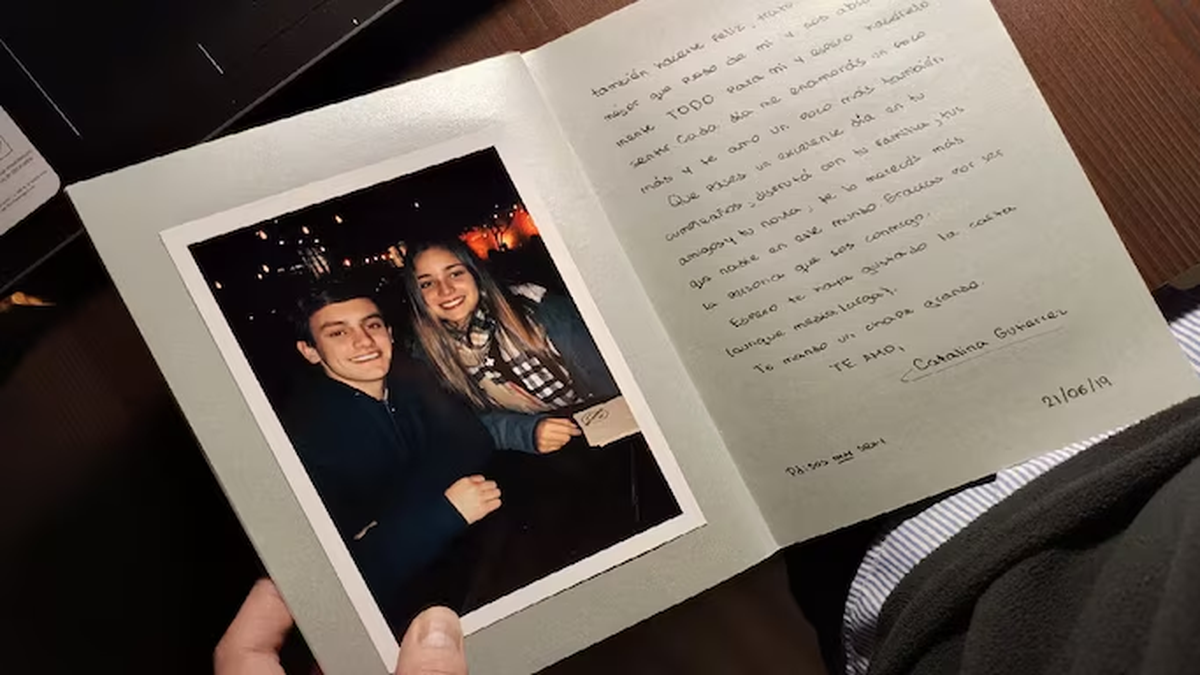 también hacerte feliz,
mejor que paso de mi y sos
mente TODO para mi y espero hacertelo
sentir. Cada día me enamorás un poco
más y te amo un poco más también.
Que pases un excelente día en tu
cumpleaños, disfrutá con tu familia, tus
amigos y tu novia, te lo merecés más
que nadie en este mundo. Gracias por ser
la persona que sos conmigo.
Espero te haya gustado la cartita
(aunque media larga).
Te mando un chape grande.
TE AMO,
Catalina Gutierrez
21/06/19
PD: sos MUY sexy